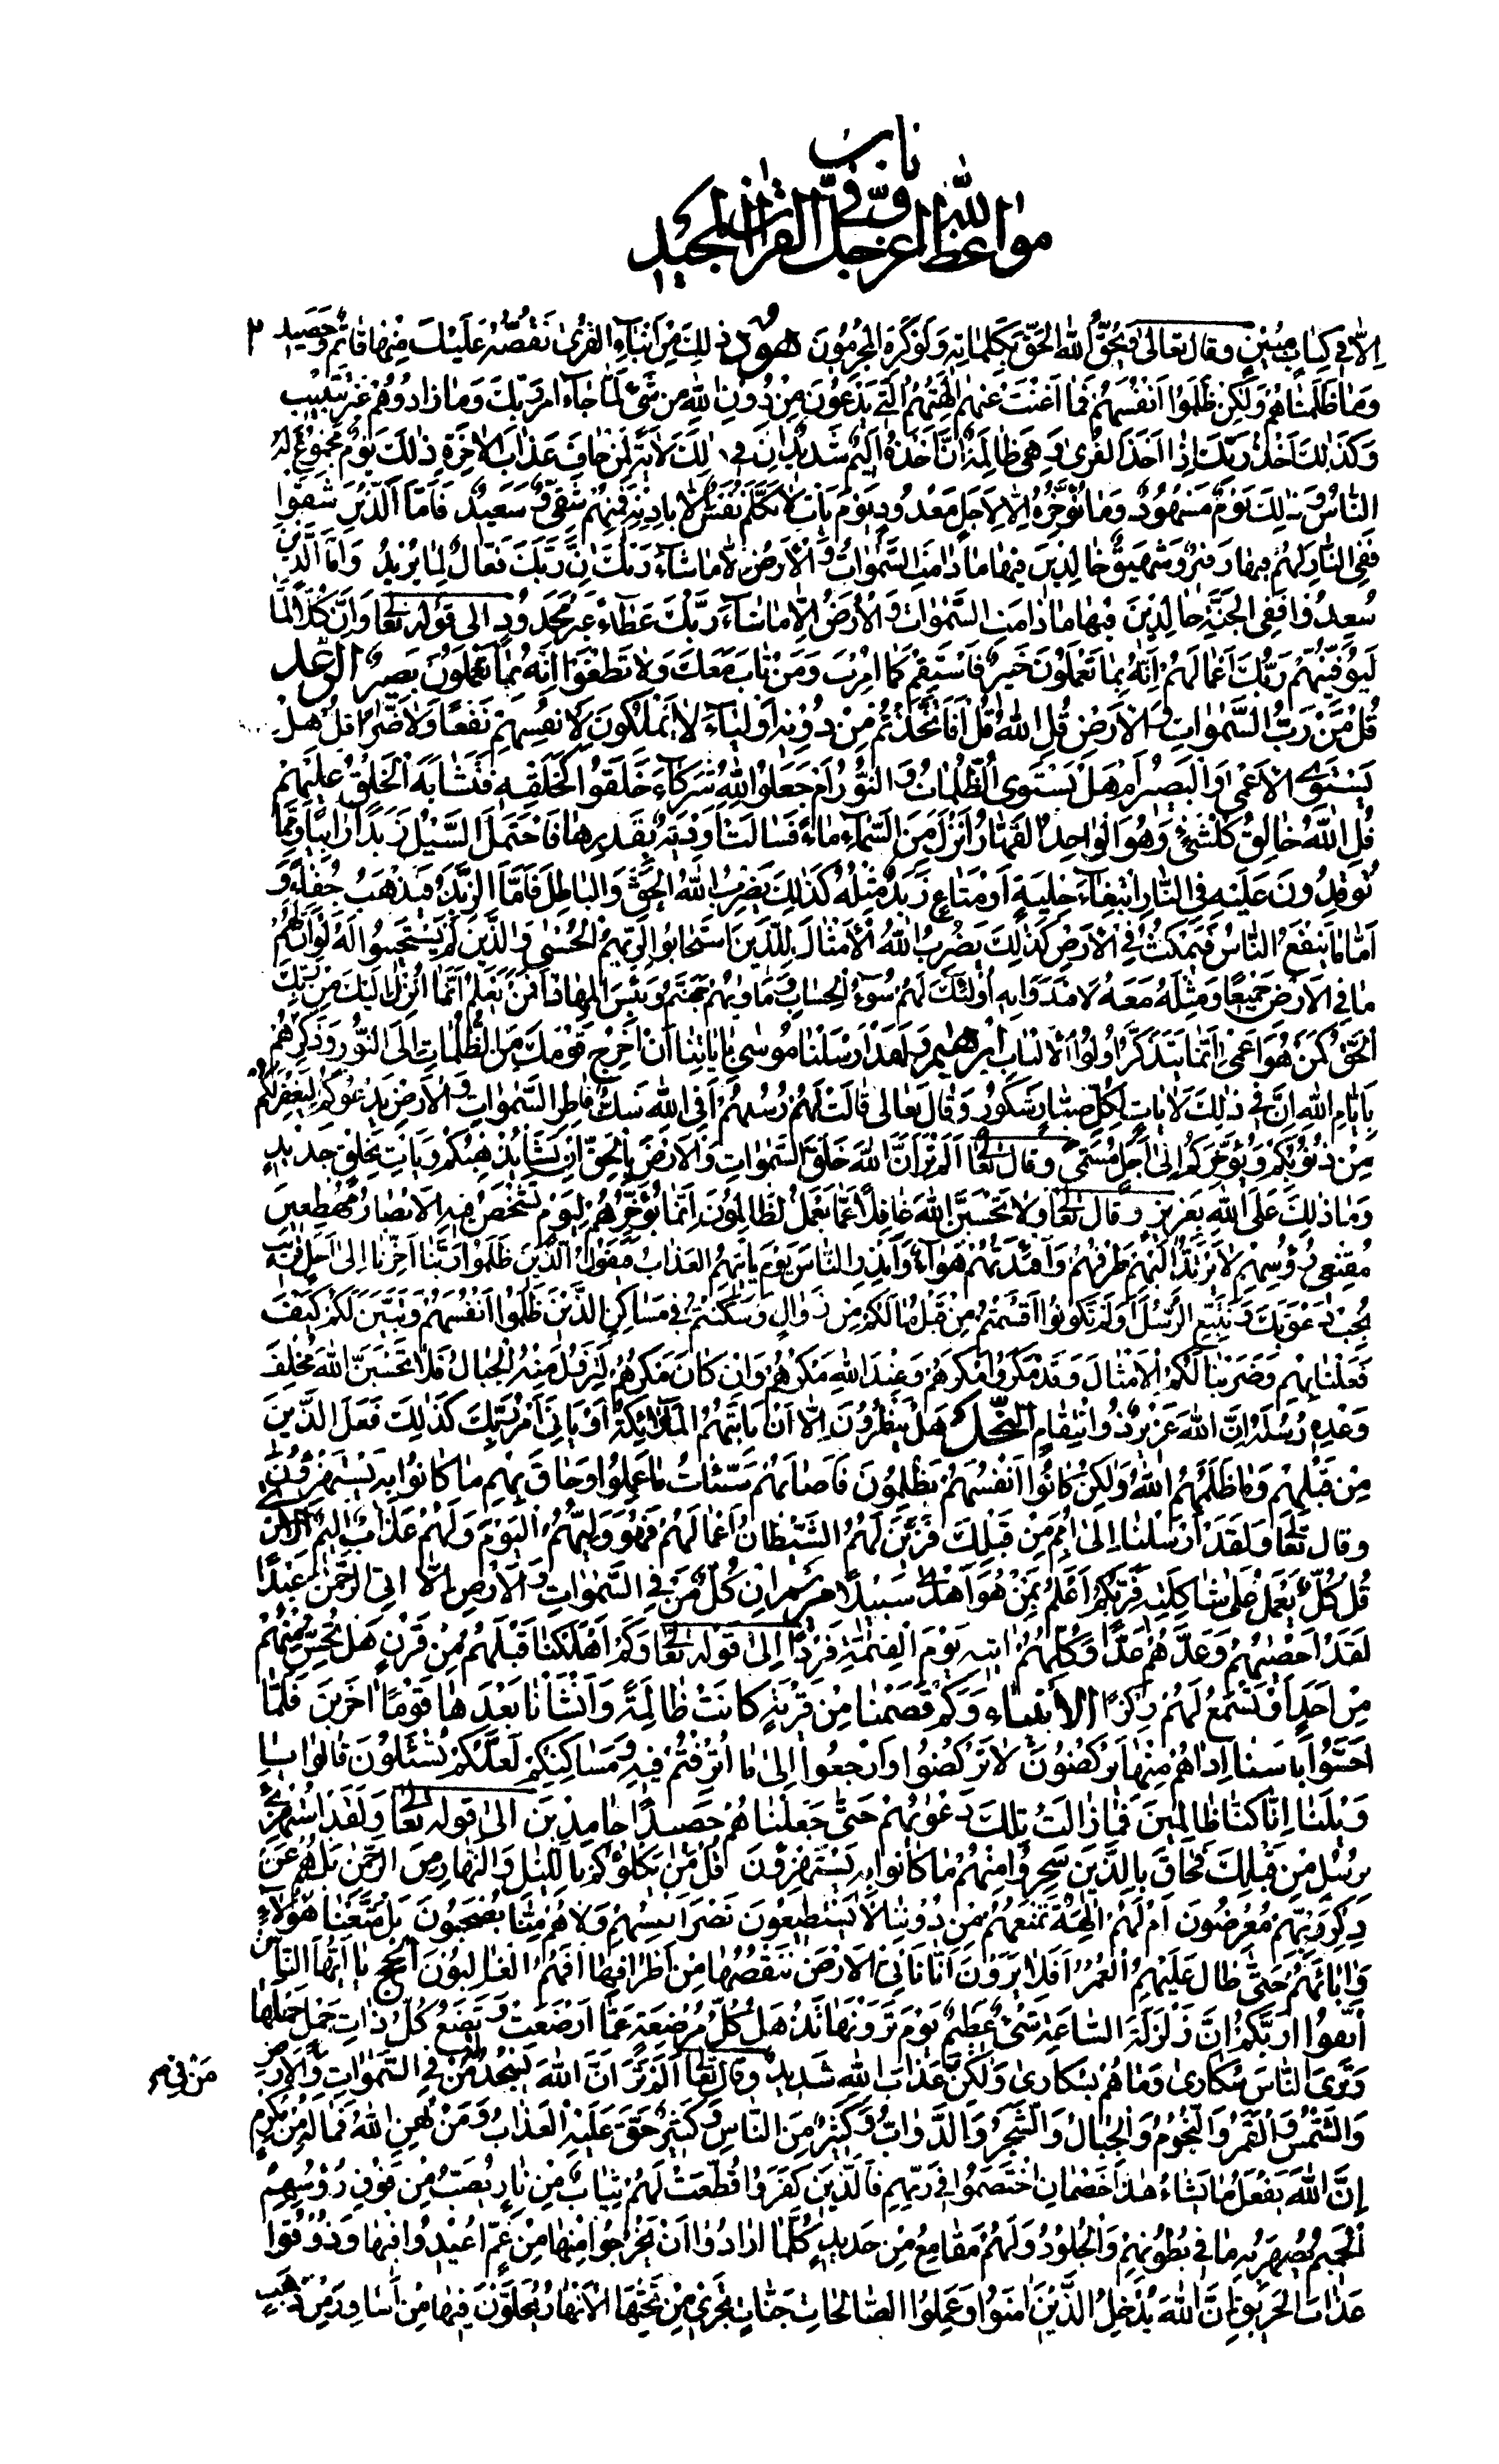 باب
مواعظ الله عز وجل في القرآن المجيد
اِلاّٰ في كِتٰابٍ مُبينٍ وقال تعالى وَيُحِقُّ اللهُ الحَقَّ بِكَلِماتِهِ وَلَوْ كَرِهَ المُجْرِمُونَ هود ذٰلِكَ مِنْ اَنْبٰآءِ القُرىٰ نَقُصُّهُ عَلَيْكَ مِنْهٰا قٰائِمٌ وَحَصيدٌ ٢
وَمٰا ظَلَمْنٰاهُمْ وَلٰكِنْ ظَلَمُوا اَنْفُسَهُمْ فَمٰا اَغْنَتْ عَنْهُمْ اٰلِهَتُهُمُ الَّتي يَدْعُونَ مِنْ دُونِ اللهِ مِنْ شَيْءٍ لَمّٰا جٰاءَ اَمْرُ رَبِّكَ وَمٰا زٰادُوهُمْ غَيْرَ تَتْبيبٍ
وَكَذٰلِكَ اَخْذُ رَبِّكَ اِذٰا اَخَذَ القُرىٰ وَهِيَ ظٰالِمَةٌ اِنَّ اَخْذَهُ اَليمٌ شَديدٌ اِنَّ في ذٰلِكَ لَاٰيَةً لِمَنْ خٰافَ عَذٰابَ الاٰخِرَةِ ذٰلِكَ يَوْمٌ مَجْمُوعٌ لَهُ
النّٰاسُ وَذٰلِكَ يَوْمٌ مَشْهُودٌ وَمٰا نُؤَخِّرُهُ اِلاّٰ لِاَجَلٍ مَعْدُودٍ يَوْمَ يَأْتِ لاٰ تَكَلَّمُ نَفْسٌ اِلاّٰ بِاِذْنِهِ فَمِنْهُمْ شَقِيٌّ وَسَعيدٌ فَاَمَّا الَّذينَ شَقُوا
فَفِي النّٰارِ لَهُمْ فيهٰا زَفيرٌ وَشَهيقٌ خٰالِدينَ فيهٰا مٰا دٰامَتِ السَّمٰوٰاتُ وَالاَرْضُ اِلاّٰ مٰا شٰآءَ رَبُّكَ اِنَّ رَبَّكَ فَعّٰالٌ لِمٰا يُريدُ وَاَمَّا الَّذينَ
سُعِدُوا فَفِي الجَنَّةِ خٰالِدينَ فيهٰا مٰا دٰامَتِ السَّمٰوٰاتُ وَالاَرْضُ اِلاّٰ مٰا شٰآءَ رَبُّكَ عَطٰآءً غَيْرَ مَجْذُوذٍ الى قوله تعالى وَاِنَّ كُلاًّ لَمّٰا
لَيُوَفِّيَنَّهُمْ رَبُّكَ اَعْمٰالَهُمْ اِنَّهُ بِمٰا يَعْمَلُونَ خَبيرٌ فَاسْتَقِمْ كَمٰا اُمِرْتَ وَمَنْ تٰابَ مَعَكَ وَلاٰ تَطْغَوْا اِنَّهُ بِمٰا تَعْمَلُونَ بَصيرٌ الرعد
قُلْ مَنْ رَبُّ السَّمٰوٰاتِ وَالاَرْضِ قُلِ اللهُ قُلْ اَفَاتَّخَذْتُمْ مِنْ دُونِهِ اَوْلِيٰآءَ لاٰ يَمْلِكُونَ لِاَنْفُسِهِمْ نَفْعًا وَلاٰ ضَرًّا قُلْ هَلْ
يَسْتَوِي الاَعْمىٰ وَالبَصيرُ اَمْ هَلْ يَسْتَوِي الظُّلُمٰاتُ وَالنُّورُ اَمْ جَعَلُوا لِلّٰهِ شُرَكٰآءَ خَلَقُوا كَخَلْقِهِ فَتَشٰابَهَ الخَلْقُ عَلَيْهِمْ
قُلِ اللهُ خٰالِقُ كُلِّ شَيْءٍ وَهُوَ الوٰاحِدُ القَهّٰارُ اَنْزَلَ مِنَ السَّمٰآءِ مٰاءً فَسٰالَتْ اَوْدِيَةٌ بِقَدَرِهٰا فَاحْتَمَلَ السَّيْلُ زَبَدًا رٰابِيًا وَمِمّٰا
تُوقِدُونَ عَلَيْهِ فِي النّٰارِ ابْتِغٰآءَ حِلْيَةٍ اَوْ مَتٰاعٍ زَبَدٌ مِثْلُهُ كَذٰلِكَ يَضْرِبُ اللهُ الحَقَّ وَالبٰاطِلَ فَاَمَّا الزَّبَدُ فَيَذْهَبُ جُفٰآءً وَ
اَمّٰا مٰا يَنْفَعُ النّٰاسَ فَيَمْكُثُ فِي الاَرْضِ كَذٰلِكَ يَضْرِبُ اللهُ الاَمْثٰالَ لِلَّذينَ اسْتَجٰابُوا لِرَبِّهِمُ الحُسْنىٰ وَالَّذينَ لَمْ يَسْتَجيبُوا لَهُ لَوْ اَنَّ لَهُمْ
مٰا فِي الاَرْضِ جَميعًا وَمِثْلَهُ مَعَهُ لاَفْتَدَوْا بِهِ اُولٰئِكَ لَهُمْ سُوۤءُ الحِسٰابِ وَمَاْوٰيهُمْ جَهَنَّمُ وَبِئْسَ المِهٰادُ اَفَمَنْ يَعْلَمُ اَنَّمٰا اُنْزِلَ اِلَيْكَ مِنْ رَبِّكَ
الحَقُّ كَمَنْ هُوَ اَعْمىٰ اِنَّمٰا يَتَذَكَّرُ اُولُوا الاَلْبٰابِ ابرهيم وَلَقَدْ اَرْسَلْنٰا مُوسىٰ بِاٰيٰاتِنٰا اَنْ اَخْرِجْ قَوْمَكَ مِنَ الظُّلُمٰاتِ اِلَى النُّورِ وَذَكِّرْهُمْ
بِاَيّٰامِ اللهِ اِنَّ في ذٰلِكَ لَاٰيٰاتٍ لِكُلِّ صَبّٰارٍ شَكُورٍ وَقٰالَ تَعٰالى قٰالَتْ لَهُمْ رُسُلُهُمْ اَفِي اللهِ شَكٌّ فٰاطِرِ السَّمٰوٰاتِ وَالاَرْضِ يَدْعُوكُمْ لِيَغْفِرَ لَكُمْ
مِنْ ذُنُوبِكُمْ وَيُؤَخِّرَكُمْ اِلىٰ اَجَلٍ مُسَمًّى وقال تعالى اَلَمْ تَرَ اَنَّ اللهَ خَلَقَ السَّمٰوٰاتِ وَالاَرْضَ بِالحَقِّ اِنْ يَشَأْ يُذْهِبْكُمْ وَيَأْتِ بِخَلْقٍ جَديدٍ
وَمٰا ذٰلِكَ عَلَى اللهِ بِعَزيزٍ وقال تعالى وَلاٰ تَحْسَبَنَّ اللهَ غٰافِلاً عَمّٰا يَعْمَلُ الظّٰالِمُونَ اِنَّمٰا يُؤَخِّرُهُمْ لِيَوْمٍ تَشْخَصُ فيهِ الاَبْصٰارُ مُهْطِعينَ
مُقْنِعي رُؤُسِهِمْ لاٰ يَرْتَدُّ اِلَيْهِمْ طَرْفُهُمْ وَاَفْئِدَتُهُمْ هَوٰآءٌ وَاَنْذِرِ النّٰاسَ يَوْمَ يَأْتيهِمُ العَذٰابُ فَيَقُولُ الَّذينَ ظَلَمُوا رَبَّنٰا اَخِّرْنٰا اِلىٰ اَجَلٍ قَريبٍ
نُجِبْ دَعْوَتَكَ وَنَتَّبِعِ الرُّسُلَ اَوَلَمْ تَكُونُوا اَقْسَمْتُمْ مِنْ قَبْلُ مٰا لَكُمْ مِنْ زَوٰالٍ وَسَكَنْتُمْ في مَسٰاكِنِ الَّذينَ ظَلَمُوا اَنْفُسَهُمْ وَتَبَيَّنَ لَكُمْ كَيْفَ
فَعَلْنٰا بِهِمْ وَضَرَبْنٰا لَكُمُ الاَمْثٰالَ وَقَدْ مَكَرُوا مَكْرَهُمْ وَعِنْدَ اللهِ مَكْرُهُمْ وَاِنْ كٰانَ مَكْرُهُمْ لِتَزُولَ مِنْهُ الجِبٰالُ فَلاٰ تَحْسَبَنَّ اللهَ مُخْلِفَ
وَعْدِهِ رُسُلَهُ اِنَّ اللهَ عَزيزٌ ذُو انْتِقٰامٍ النحل هَلْ يَنْظُرُونَ اِلاّٰ اَنْ تَأْتِيَهُمُ المَلاٰئِكَةُ اَوْ يَأْتِيَ اَمْرُ رَبِّكَ كَذٰلِكَ فَعَلَ الَّذينَ
مِنْ قَبْلِهِمْ وَمٰا ظَلَمَهُمُ اللهُ وَلٰكِنْ كٰانُوا اَنْفُسَهُمْ يَظْلِمُونَ فَاَصٰابَهُمْ سَيِّئٰاتُ مٰا عَمِلُوا وَحٰاقَ بِهِمْ مٰا كٰانُوا بِهِ يَسْتَهْزِؤُنَ
وقال تعالى وَلَقَدْ اَرْسَلْنٰا اِلىٰ اُمَمٍ مِنْ قَبْلِكَ فَزَيَّنَ لَهُمُ الشَّيْطٰانُ اَعْمٰالَهُمْ فَهُوَ وَلِيُّهُمُ اليَوْمَ وَلَهُمْ عَذٰابٌ اَليمٌ الاسرى
قُلْ كُلٌّ يَعْمَلُ عَلىٰ شٰاكِلَتِهِ فَرَبُّكُمْ اَعْلَمُ بِمَنْ هُوَ اَهْدىٰ سَبيلاً مريم اِنْ كُلُّ مَنْ فِي السَّمٰوٰاتِ وَالاَرْضِ اِلاّٰ اٰتِي الرَّحْمٰنِ عَبْدًا
لَقَدْ اَحْصٰيهُمْ وَعَدَّهُمْ عَدًّا وَكُلُّهُمْ اٰتيهِ يَوْمَ القِيٰمَةِ فَرْدًا اِلىٰ قوله تعالى وَكَمْ اَهْلَكْنٰا قَبْلَهُمْ مِنْ قَرْنٍ هَلْ تُحِسُّ مِنْهُمْ
مِنْ اَحَدٍ اَوْ تَسْمَعُ لَهُمْ رِكْزًا الانبياء وَكَمْ قَصَمْنٰا مِنْ قَرْيَةٍ كٰانَتْ ظٰالِمَةً وَاَنْشَأْنٰا بَعْدَهٰا قَوْمًا اٰخَرينَ فَلَمّٰا
اَحَسُّوا بَأْسَنٰا اِذٰا هُمْ مِنْهٰا يَرْكُضُونَ لاٰ تَرْكُضُوا وَارْجِعُوا اِلىٰ مٰا اُتْرِفْتُمْ فيهِ وَمَسٰاكِنِكُمْ لَعَلَّكُمْ تُسْئَلُونَ قٰالُوا يٰا
وَيْلَنٰا اِنّٰا كُنّٰا ظٰالِمينَ فَمٰا زٰالَتْ تِلْكَ دَعْوٰيهُمْ حَتّىٰ جَعَلْنٰاهُمْ حَصيدًا خٰامِدينَ الىٰ قوله تعالى وَلَقَدِ اسْتُهْزِئَ
بِرُسُلٍ مِنْ قَبْلِكَ فَحٰاقَ بِالَّذينَ سَخِرُوا مِنْهُمْ مٰا كٰانُوا بِهِ يَسْتَهْزِؤُنَ قُلْ مَنْ يَكْلَؤُكُمْ بِاللَّيْلِ وَالنَّهٰارِ مِنَ الرَّحْمٰنِ بَلْ هُمْ عَنْ
ذِكْرِ رَبِّهِمْ مُعْرِضُونَ اَمْ لَهُمْ اٰلِهَةٌ تَمْنَعُهُمْ مِنْ دُونِنٰا لاٰ يَسْتَطيعُونَ نَصْرَ اَنْفُسِهِمْ وَلاٰ هُمْ مِنّٰا يُصْحَبُونَ بَلْ مَتَّعْنٰا هٰؤُلاٰءِ
وَاٰبٰائَهُمْ حَتّىٰ طٰالَ عَلَيْهِمُ العُمُرُ اَفَلاٰ يَرَوْنَ اَنّٰا نَأْتِي الاَرْضَ نَنْقُصُهٰا مِنْ اَطْرٰافِهٰا اَفَهُمُ الغٰالِبُونَ الحج يٰا اَيُّهَا النّٰاسُ
اتَّقُوا رَبَّكُمْ اِنَّ زَلْزَلَةَ السّٰاعَةِ شَيْءٌ عَظيمٌ يَوْمَ تَرَوْنَهٰا تَذْهَلُ كُلُّ مُرْضِعَةٍ عَمّٰا اَرْضَعَتْ وَتَضَعُ كُلُّ ذٰاتِ حَمْلٍ حَمْلَهٰا
وَتَرَى النّٰاسَ سُكٰارىٰ وَمٰا هُمْ بِسُكٰارىٰ وَلٰكِنَّ عَذٰابَ اللهِ شَديدٌ وقال تعالى اَلَمْ تَرَ اَنَّ اللهَ يَسْجُدُ لَهُ مَنْ فِي السَّمٰوٰاتِ وَالاَرْضِ
مَنْ فِي
وَالشَّمْسُ وَالقَمَرُ وَالنُّجُومُ وَالجِبٰالُ وَالشَّجَرُ وَالدَّوٰابُّ وَكَثيرٌ مِنَ النّٰاسِ وَكَثيرٌ حَقَّ عَلَيْهِ العَذٰابُ وَمَنْ يُهِنِ اللهُ فَمٰا لَهُ مِنْ مُكْرِمٍ
اِنَّ اللهَ يَفْعَلُ مٰا يَشٰاءُ هٰذٰانِ خَصْمٰانِ اخْتَصَمُوا في رَبِّهِمْ فَالَّذينَ كَفَرُوا قُطِّعَتْ لَهُمْ ثِيٰابٌ مِنْ نٰارٍ يُصَبُّ مِنْ فَوْقِ رُؤُسِهِمُ
الحَميمُ يُصْهَرُ بِهِ مٰا في بُطُونِهِمْ وَالجُلُودُ وَلَهُمْ مَقٰامِعُ مِنْ حَديدٍ كُلَّمٰا اَرٰادُوا اَنْ يَخْرُجُوا مِنْهٰا مِنْ غَمٍّ اُعيدُوا فيهٰا وَذُوقُوا
عَذٰابَ الحَريقِ اِنَّ اللهَ يُدْخِلُ الَّذينَ اٰمَنُوا وَعَمِلُوا الصّٰالِحٰاتِ جَنّٰاتٍ تَجْري مِنْ تَحْتِهَا الاَنْهٰارُ يُحَلَّوْنَ فيهٰا مِنْ اَسٰاوِرَ مِنْ ذَهَبٍ